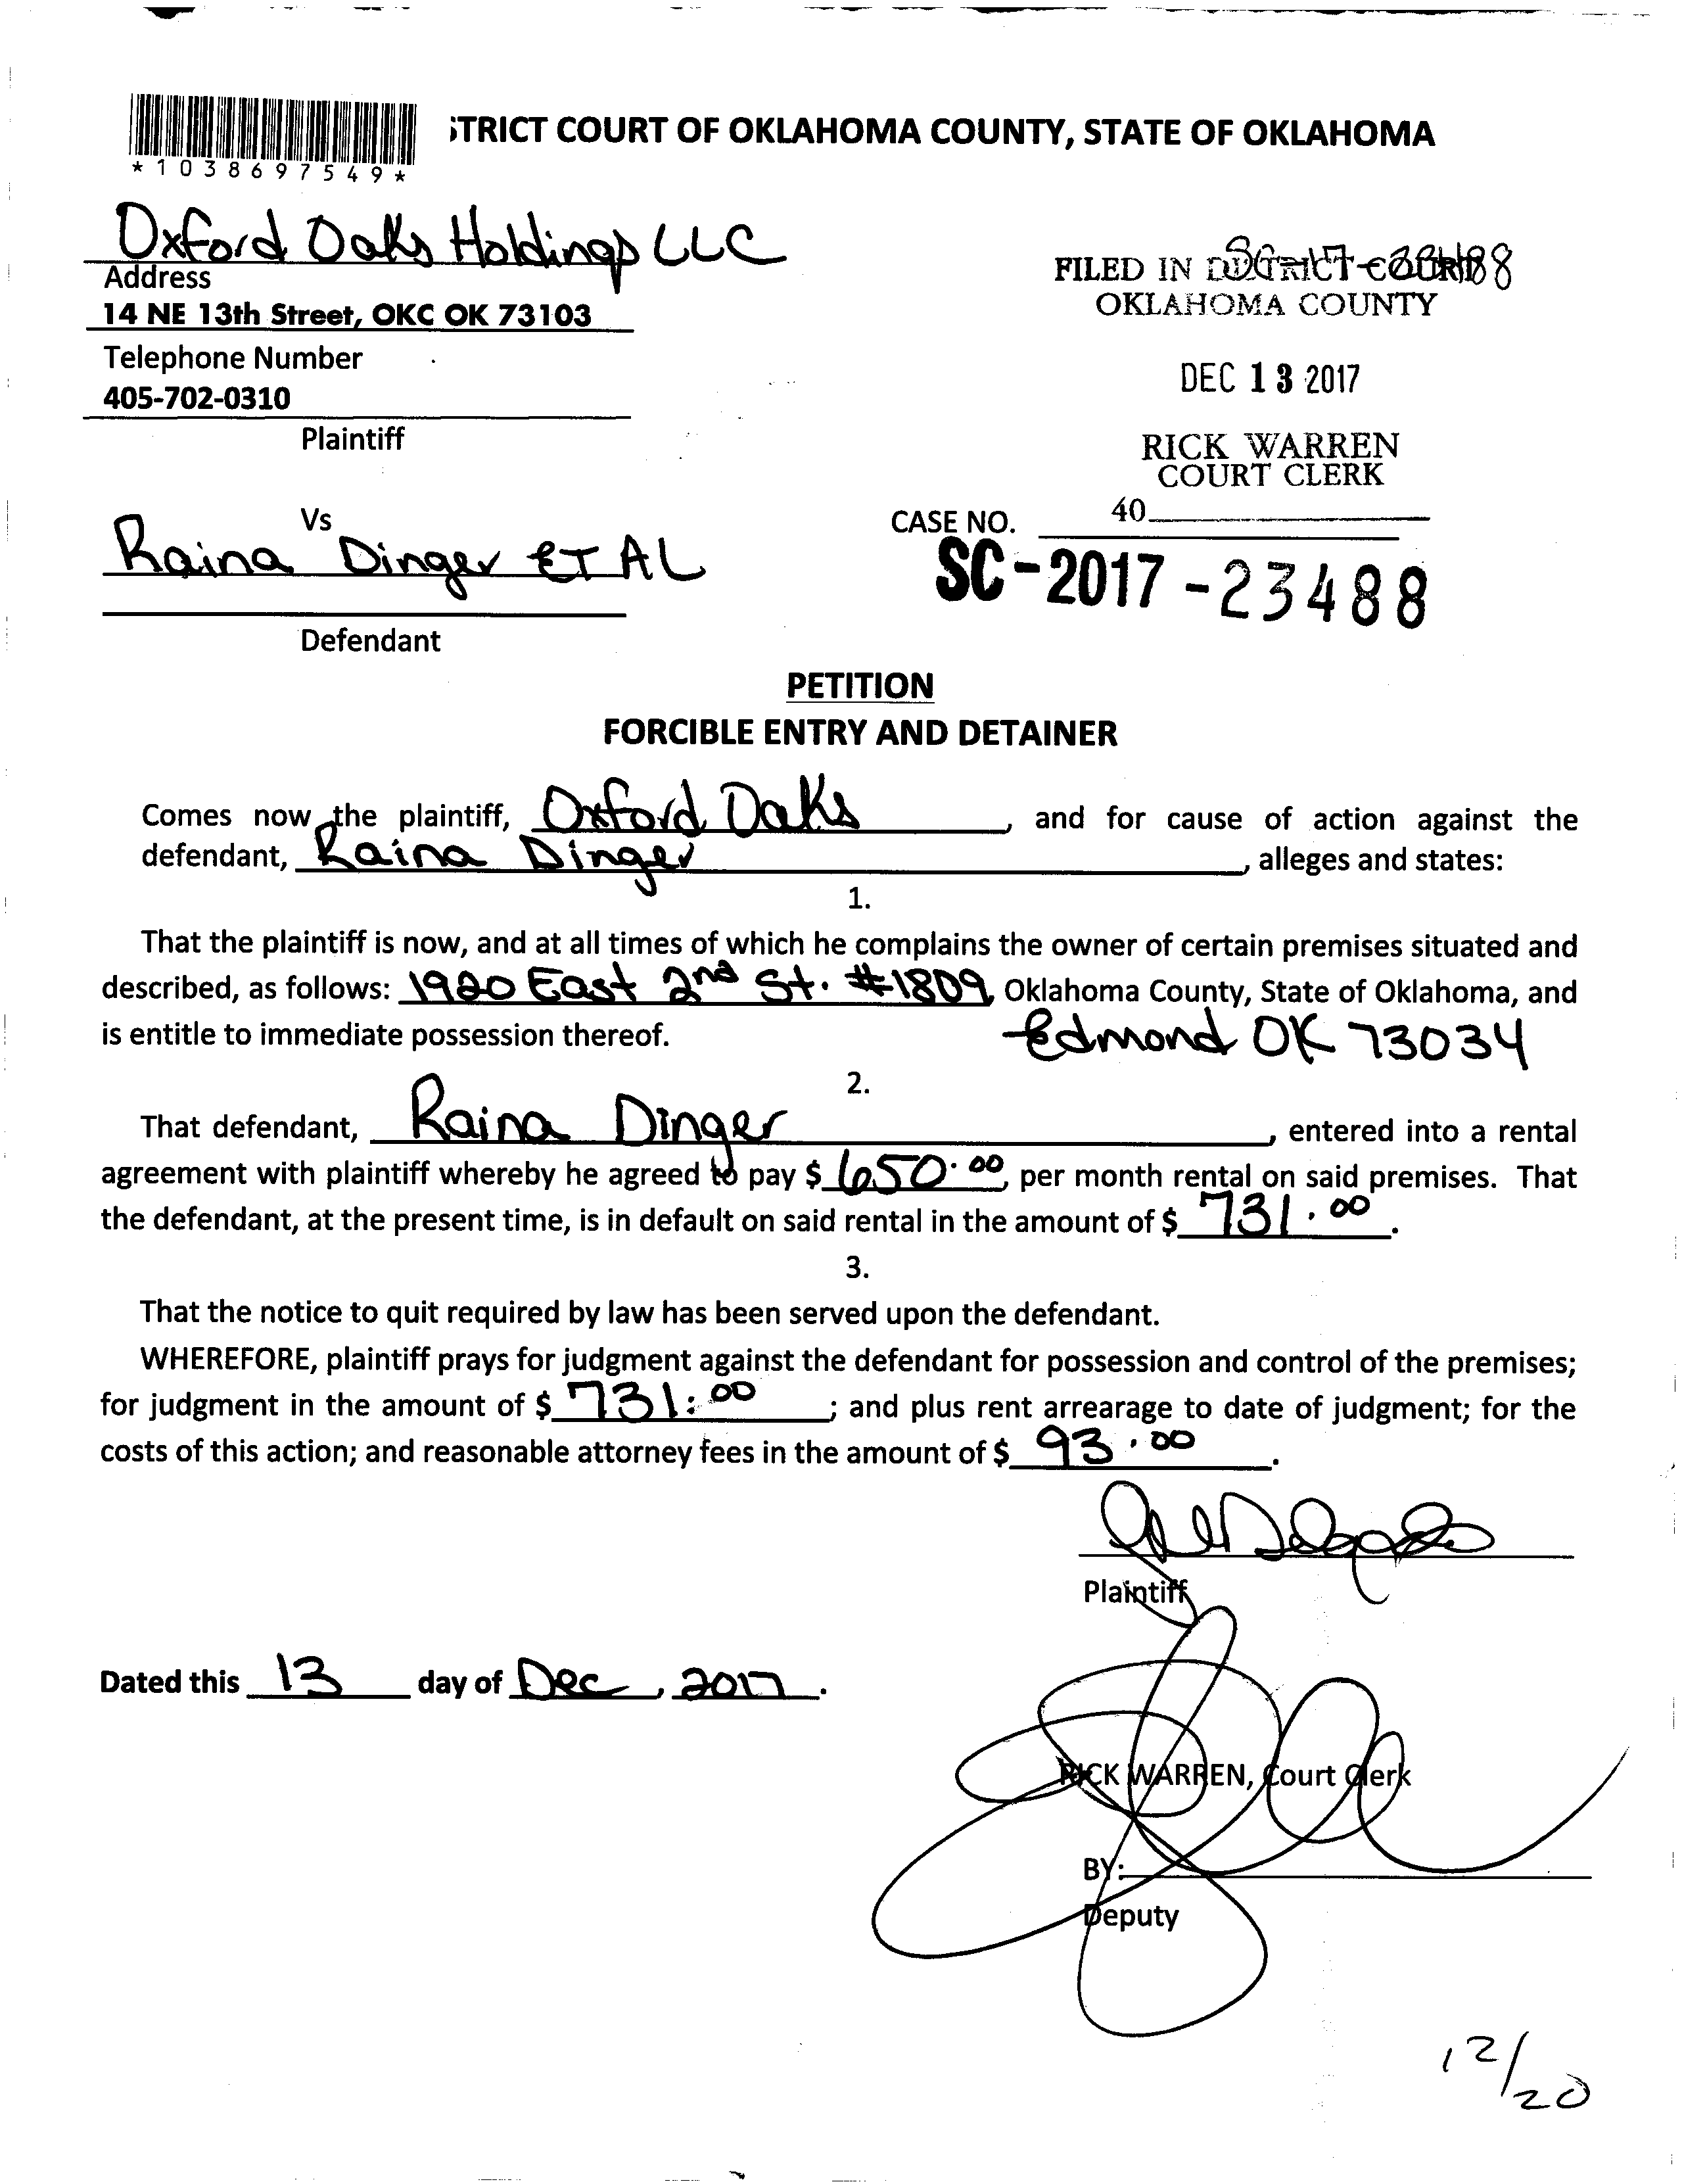 STRICT COURT OF OKLAHOMA COUNTY, STATE OF OKLAHOMA
*1038697549*
Oxford Oaks Holdings LLC
Address
14 NE 13th Street, OKC OK 73103
Telephone Number
405-702-0310
Plaintiff
FILED IN DISTRICT COURT
OKLAHOMA COUNTY
DEC 13 2017
RICK WARREN
COURT CLERK
40
Vs
Raina Dinger ET AL
Defendant
CASE NO.
SC-2017-23488
PETITION
FORCIBLE ENTRY AND DETAINER
Comes now the plaintiff, Oxford Oaks, and for cause of action against the
defendant, Raina Dinger, alleges and states:
1.
That the plaintiff is now, and at all times of which he complains the owner of certain premises situated and
described, as follows: 1920 East 2nd St. #1809, Oklahoma County, State of Oklahoma, and
is entitle to immediate possession thereof. Edmond OK 73034
2.
That defendant, Raina Dinger, entered into a rental
agreement with plaintiff whereby he agreed to pay $ 650.00, per month rental on said premises. That
the defendant, at the present time, is in default on said rental in the amount of $ 731.00.
3.
That the notice to quit required by law has been served upon the defendant.
WHEREFORE, plaintiff prays for judgment against the defendant for possession and control of the premises;
for judgment in the amount of $ 731.00; and plus rent arrearage to date of judgment; for the
costs of this action; and reasonable attorney fees in the amount of $ 93.00.
Plaintiff
Dated this 13 day of Dec, 2017.
RICK WARREN, Court Clerk
BY:
Deputy
12/20